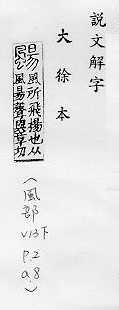 說文解字
大徐本
颺 風所飛揚也从
風昜聲與章切
(風部
V13下
P.2
a.8)